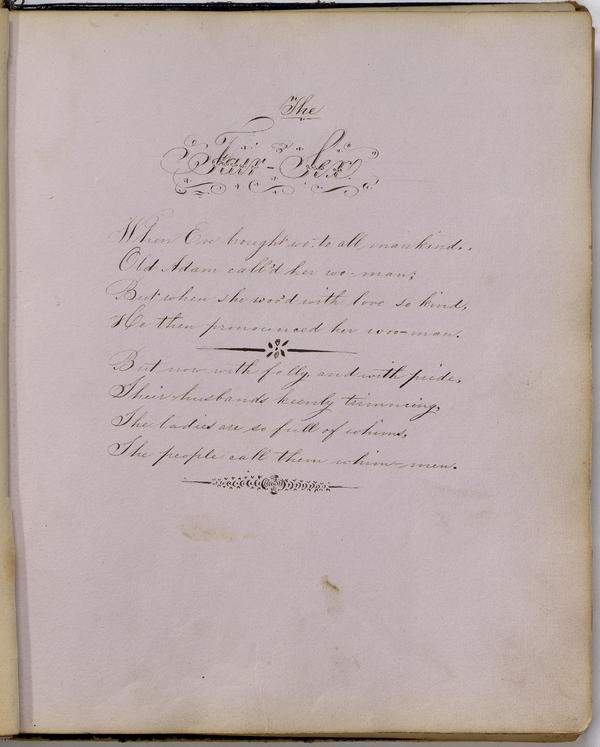 The
Fair-Sex
When Eve bought wo to all mankind,
Old Adam call'd her wo-man;
But when she woo'd with love so kind,
He then pronounced her woo-man.
But now with folly, and with pride,
Their husbands keenly trimming,
The ladies are so full of whims,
The people call them whim-men.